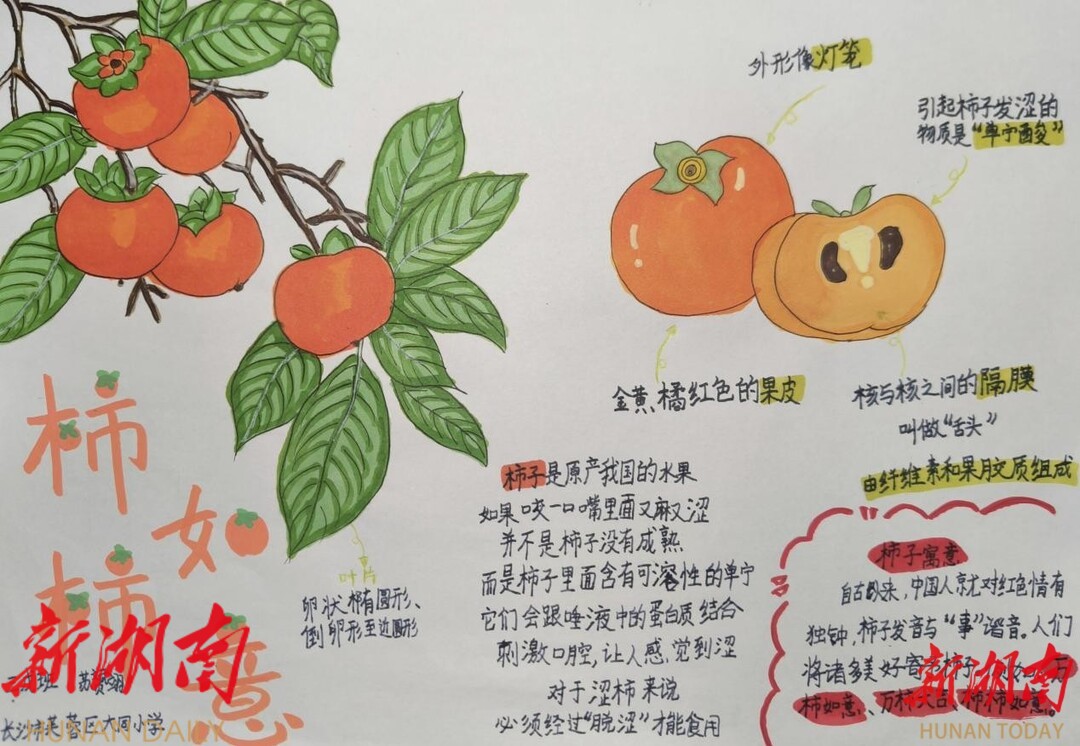 外形像灯笼
引起柿子发涩的
物质是“单宁酸”
金黄、橘红色的果皮
核与核之间的隔膜
叫做“舌头”
由纤维素和果胶质组成
柿
如
柿
意
叶片
卵状椭圆形、
倒卵形至近圆形
柿子是原产我国的水果
如果咬一口嘴里面又麻又涩
并不是柿子没有成熟
而是柿子里面含有可溶性的单宁
它们会跟唾液中的蛋白质结合
刺激口腔,让人感觉到涩
对于涩柿来说
必须经过“脱涩”才能食用
柿子寓意
自古以来,中国人就对红色情有
独钟,柿子发音与“事”谐音。人们
将诸多美好寄
柿如意、万柿大吉、柿柿如意。
长沙市芙蓉区大同小学
新湖南
HUNAN DAILY
新湖南
HUNAN TODAY